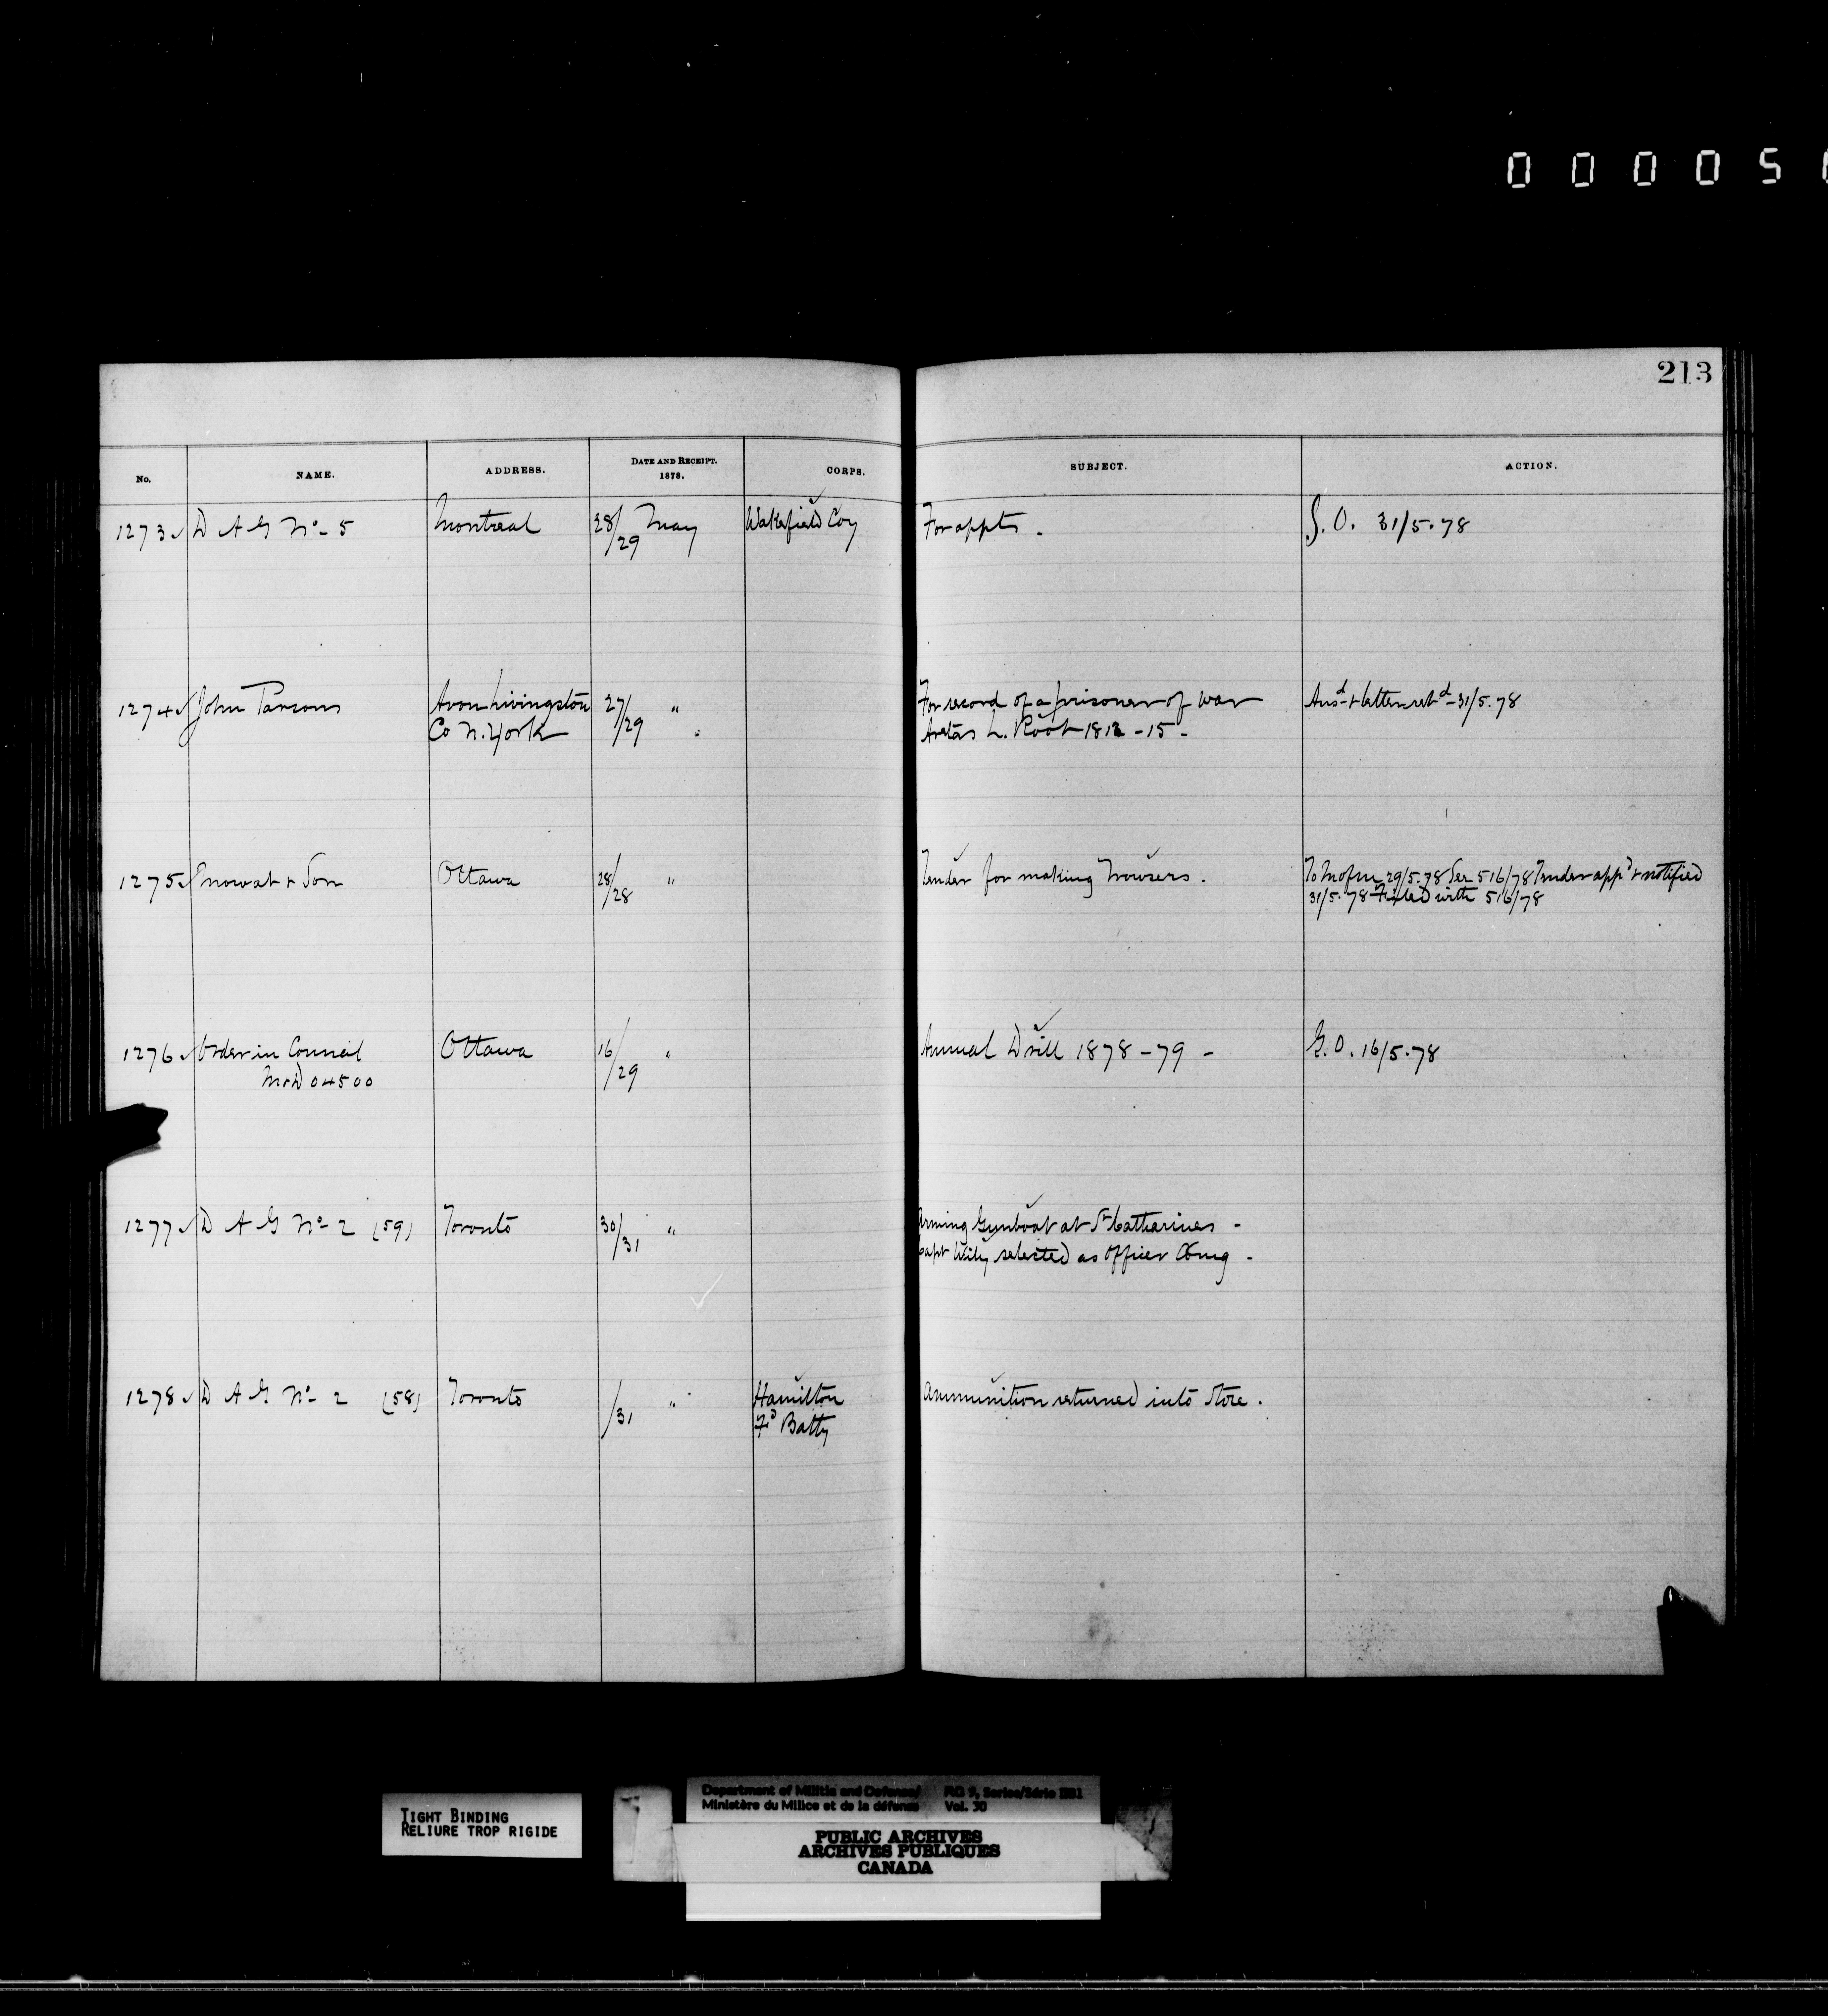 0 0 0 0 5
213
No. NAME. ADDRESS. DATE AND RECEIPT. 1878. CORPS. SUBJECT. ACTION.
1273 D A G No. 5 Montreal 28/29 May Wakefield Coy For appts. G.O. 31/5.78
1274 John Parsons Avon Livingston 27/29 " For record of a prisoner of war Ansd & letter retd 31/5.78
Co N. York Aretas L. Root 1812-15-
1275 Mowat & Son Ottawa 28/28 " Tender for making Trousers. To M of M 29/5.78 See 516/78 Tender appd & notified
31/5.78 Filed with 516/78
1276 Order in Council Ottawa 16/29 " Annual Drill 1878-79 - G.O. 16/5.78
M&D 04500
1277 D A G No. 2 (59) Toronto 30/31 " Arming Gunboat at St Catharines -
Capt Wily selected as Officer Comg -
1278 D A G No. 2 (58) Toronto /31 " Hamilton Ammunition returned into Store.
Fd Batty
TIGHT BINDING
RELIURE TROP RIGIDE
Department of Militia and Defence/ RG 9, Series/Série IIB1
Ministère du Milice et de la défense Vol. 30
PUBLIC ARCHIVES
ARCHIVES PUBLIQUES
CANADA